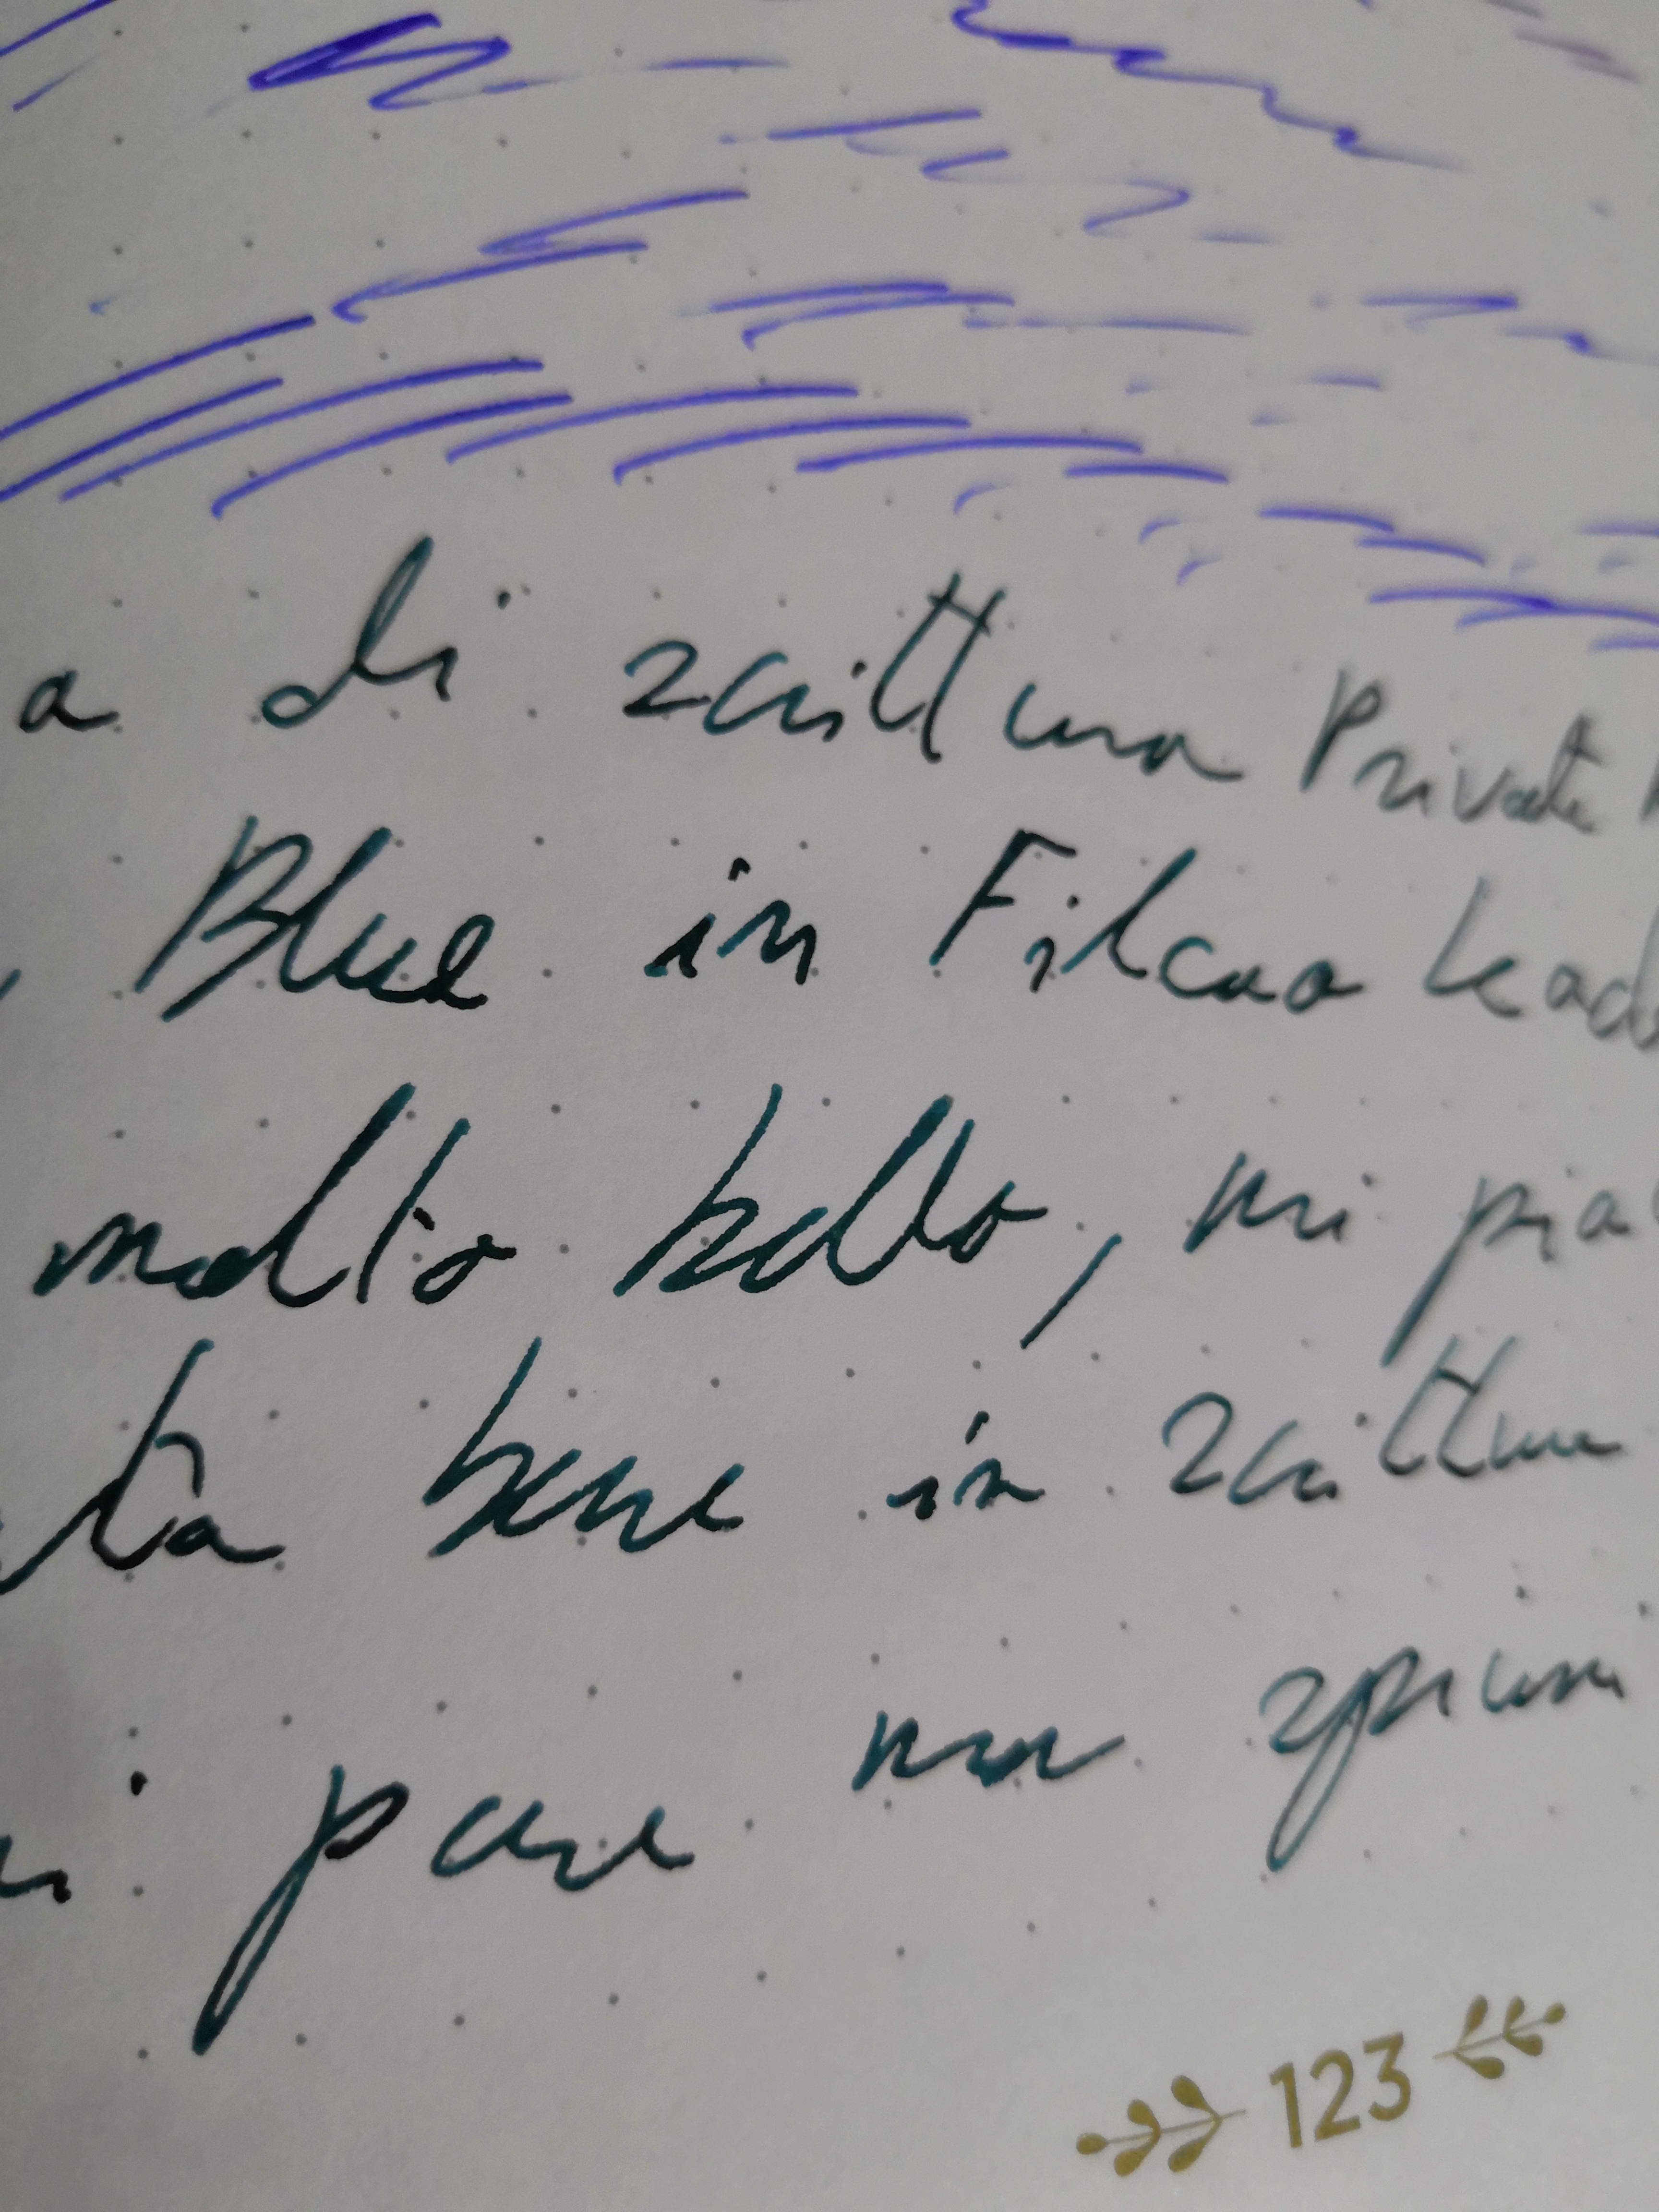 a di scrittura Private
Blue in Filcao Lead
molto bello, mi pia
ta bene in scrittu
i pare una spium
123